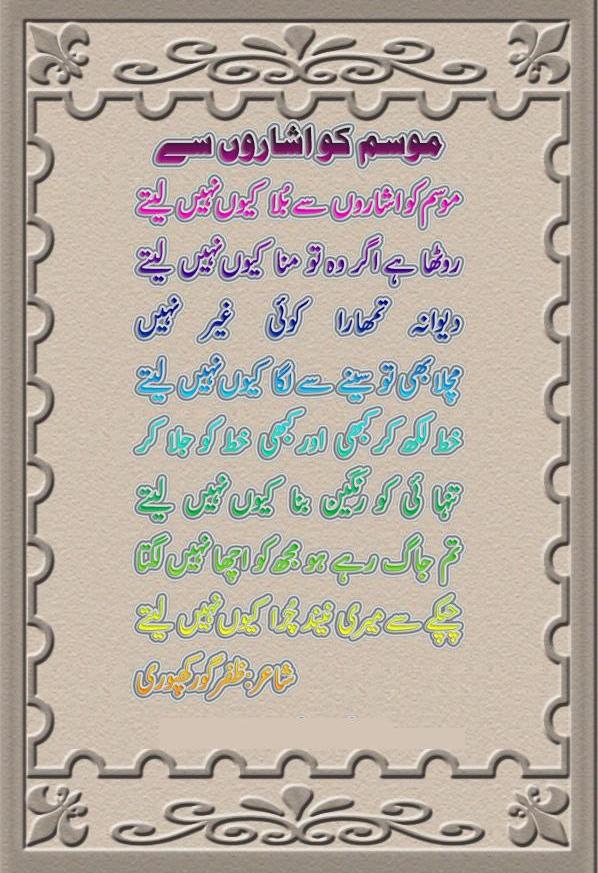 موسم کو اشاروں سے
موسم کو اشاروں سے بُلا کیوں نہیں لیتے
روٹھا ہے اگر وہ تو منا کیوں نہیں لیتے
دیوانہ تمھارا کوئی غیر نہیں
مچلا بھی تو سینے سے لگا کیوں نہیں لیتے
خط لکھ کر کبھی اور کبھی خط کو جلا کر
تنہائی کو رنگین بنا کیوں نہیں لیتے
تم جاگ رہے ہو مجھ کو اچھا نہیں لگتا
چپکے سے میری نیند چُرا کیوں نہیں لیتے
شاعر: ظفر گورکھپوری